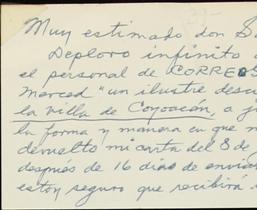 Muy estimado don Sa
Deploro infinito
el personal de CORREOS
Merced "un ilustre desc
la villa de Coyoacán, a j
la forma y manera en que m
devuelto mi carta del 8 de
después de 16 días de envia
estoy seguro que recibirá